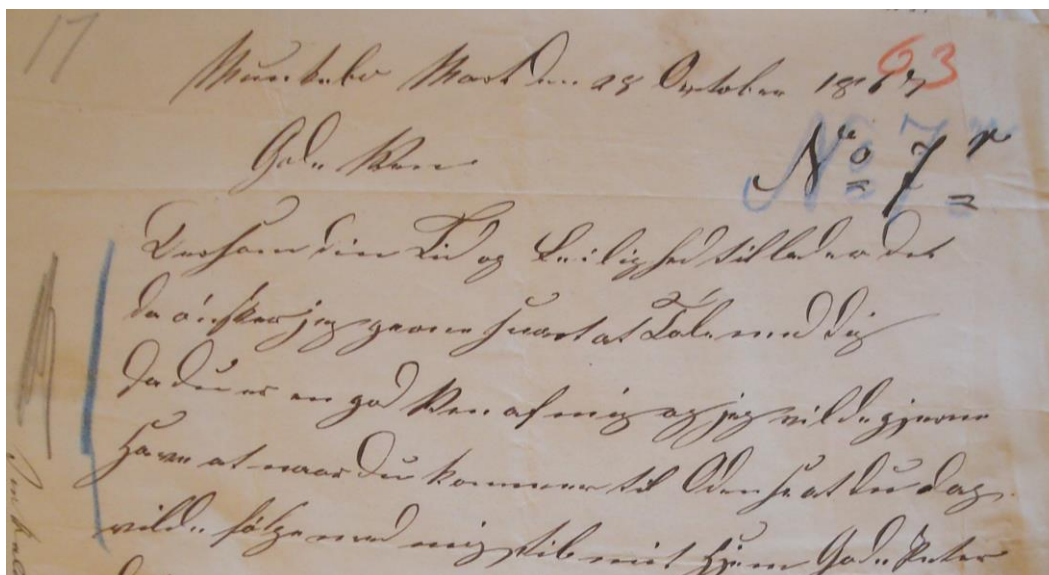 17
63
Munkebo Mark den 28 October 1867
No 7
Gode Ven
Dersom din Tid og Leilighed tillader det
da ónsker jeg gerne snart at Tale med dig
da du er en god Ven af mig og jeg vilde gjerne
Have at naar du kommer til Odense at du dog
vilde fólge med mig til mit Hjem Gode Peter